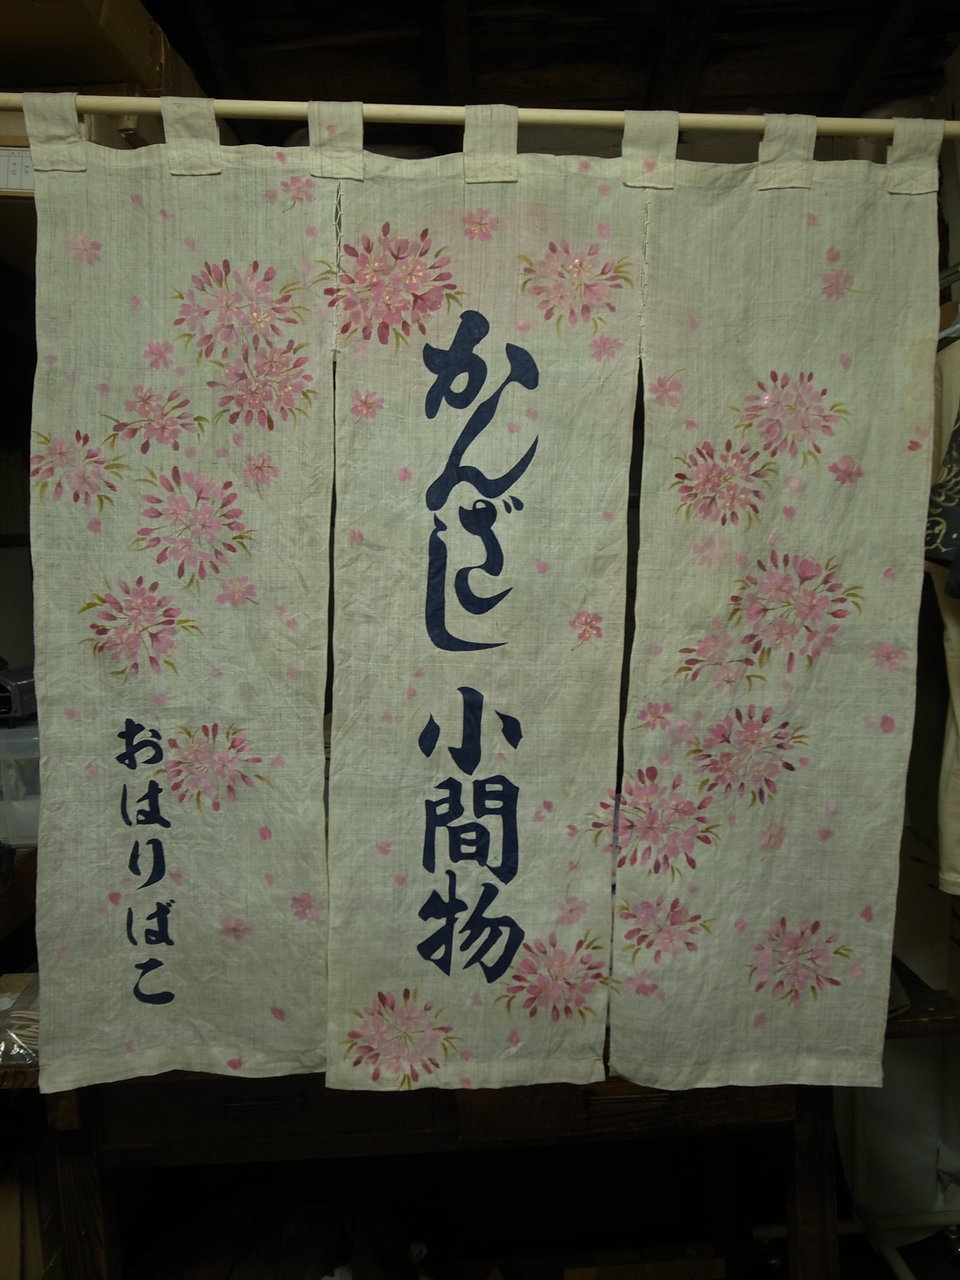 かんざし 小間物
おはりばこ